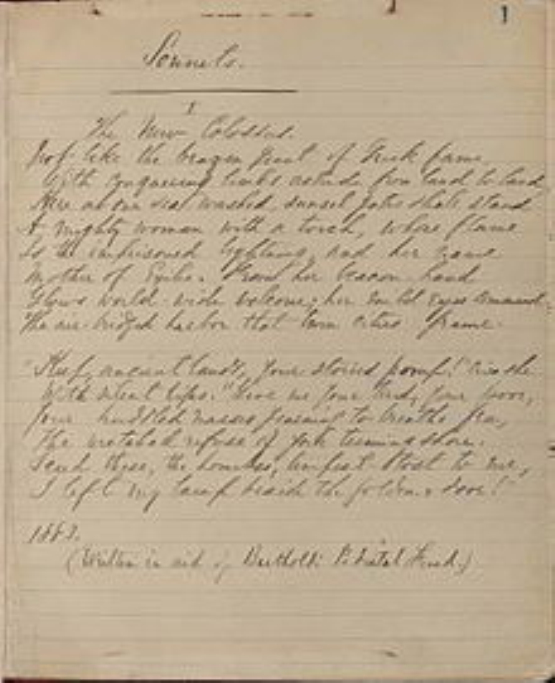 1
Sonnets.
I
The New Colossus.
Not like the brazen giant of Greek fame,
With conquering limbs astride from land to land;
Here at our sea-washed, sunset gates shall stand
A mighty woman with a torch, whose flame
Is the imprisoned lightning, and her name
Mother of Exiles. From her beacon-hand
Glows world-wide welcome; her mild eyes command
The air-bridged harbor that twin cities frame.
"Keep, ancient lands, your storied pomp!" cries she
With silent lips. "Give me your tired, your poor,
Your huddled masses yearning to breathe free,
The wretched refuse of your teeming shore.
Send these, the homeless, tempest-tost to me,
I lift my lamp beside the golden door!"
1883.
(Written in aid of Bartholdi Pedestal Fund.)